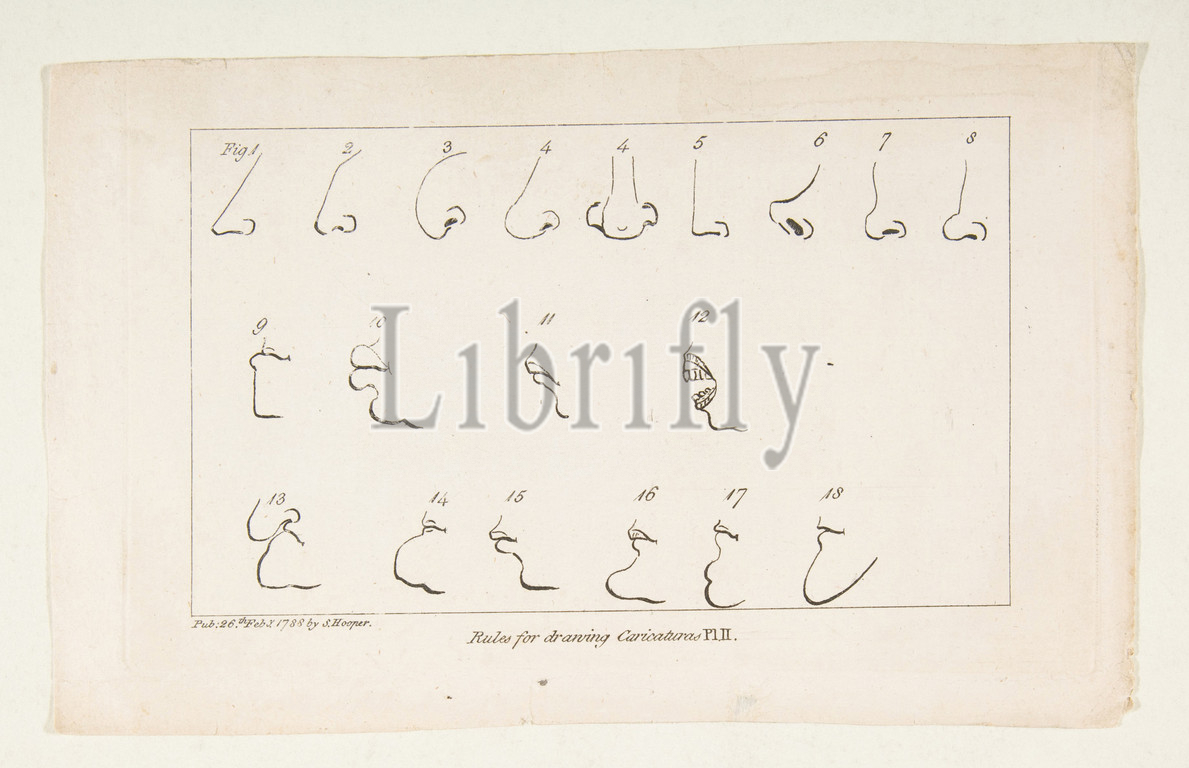 Fig. 1 2 3 4 4 5 6 7 8
9 10 11 12
Librifly
13 14 15 16 17 18
Pub: 26.th Feby 1788 by S. Hooper.
Rules for drawing Caricaturas Pl. II.